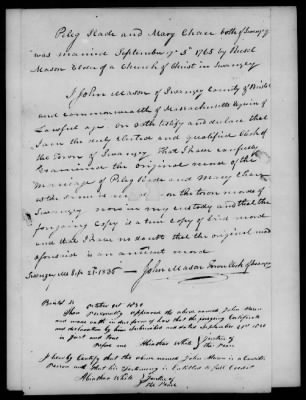 Peleg Slade and Mary Chace both of Swansey
was married September 5th 1765 by Russel
Mason Elder of a Church of Christ in Swansey
I John Mason of Swansey County of Bristol
and Commonwealth of Massachusetts
Lawful age on oath testify and declare that
I am the duly Elected and qualified Clerk of
the Town of Swansey That I have carefully
Examined the original record of the
Marriage of Peleg Slade and Mary Chace
on the town records of
Swansey now in my custody and that the
forgoing copy is a true copy of said record
and that I have no doubt that the original record
aforesaid is an ancient record
Swansey
John Mason Town Clerk of Swansey
Bristol ss
Then Personally appeared the above named John Mason
and made oath in due form of law that the foregoing Certificate
and declaration by him Subscribed and dated September 21st
is Just and true
Before me Abiather White Justice of
the Peace
I hereby Certify that the above named John Mason is a credible
Person and that his Testimony is Entitled to full Credit
Abiather White Justice of
the Peace